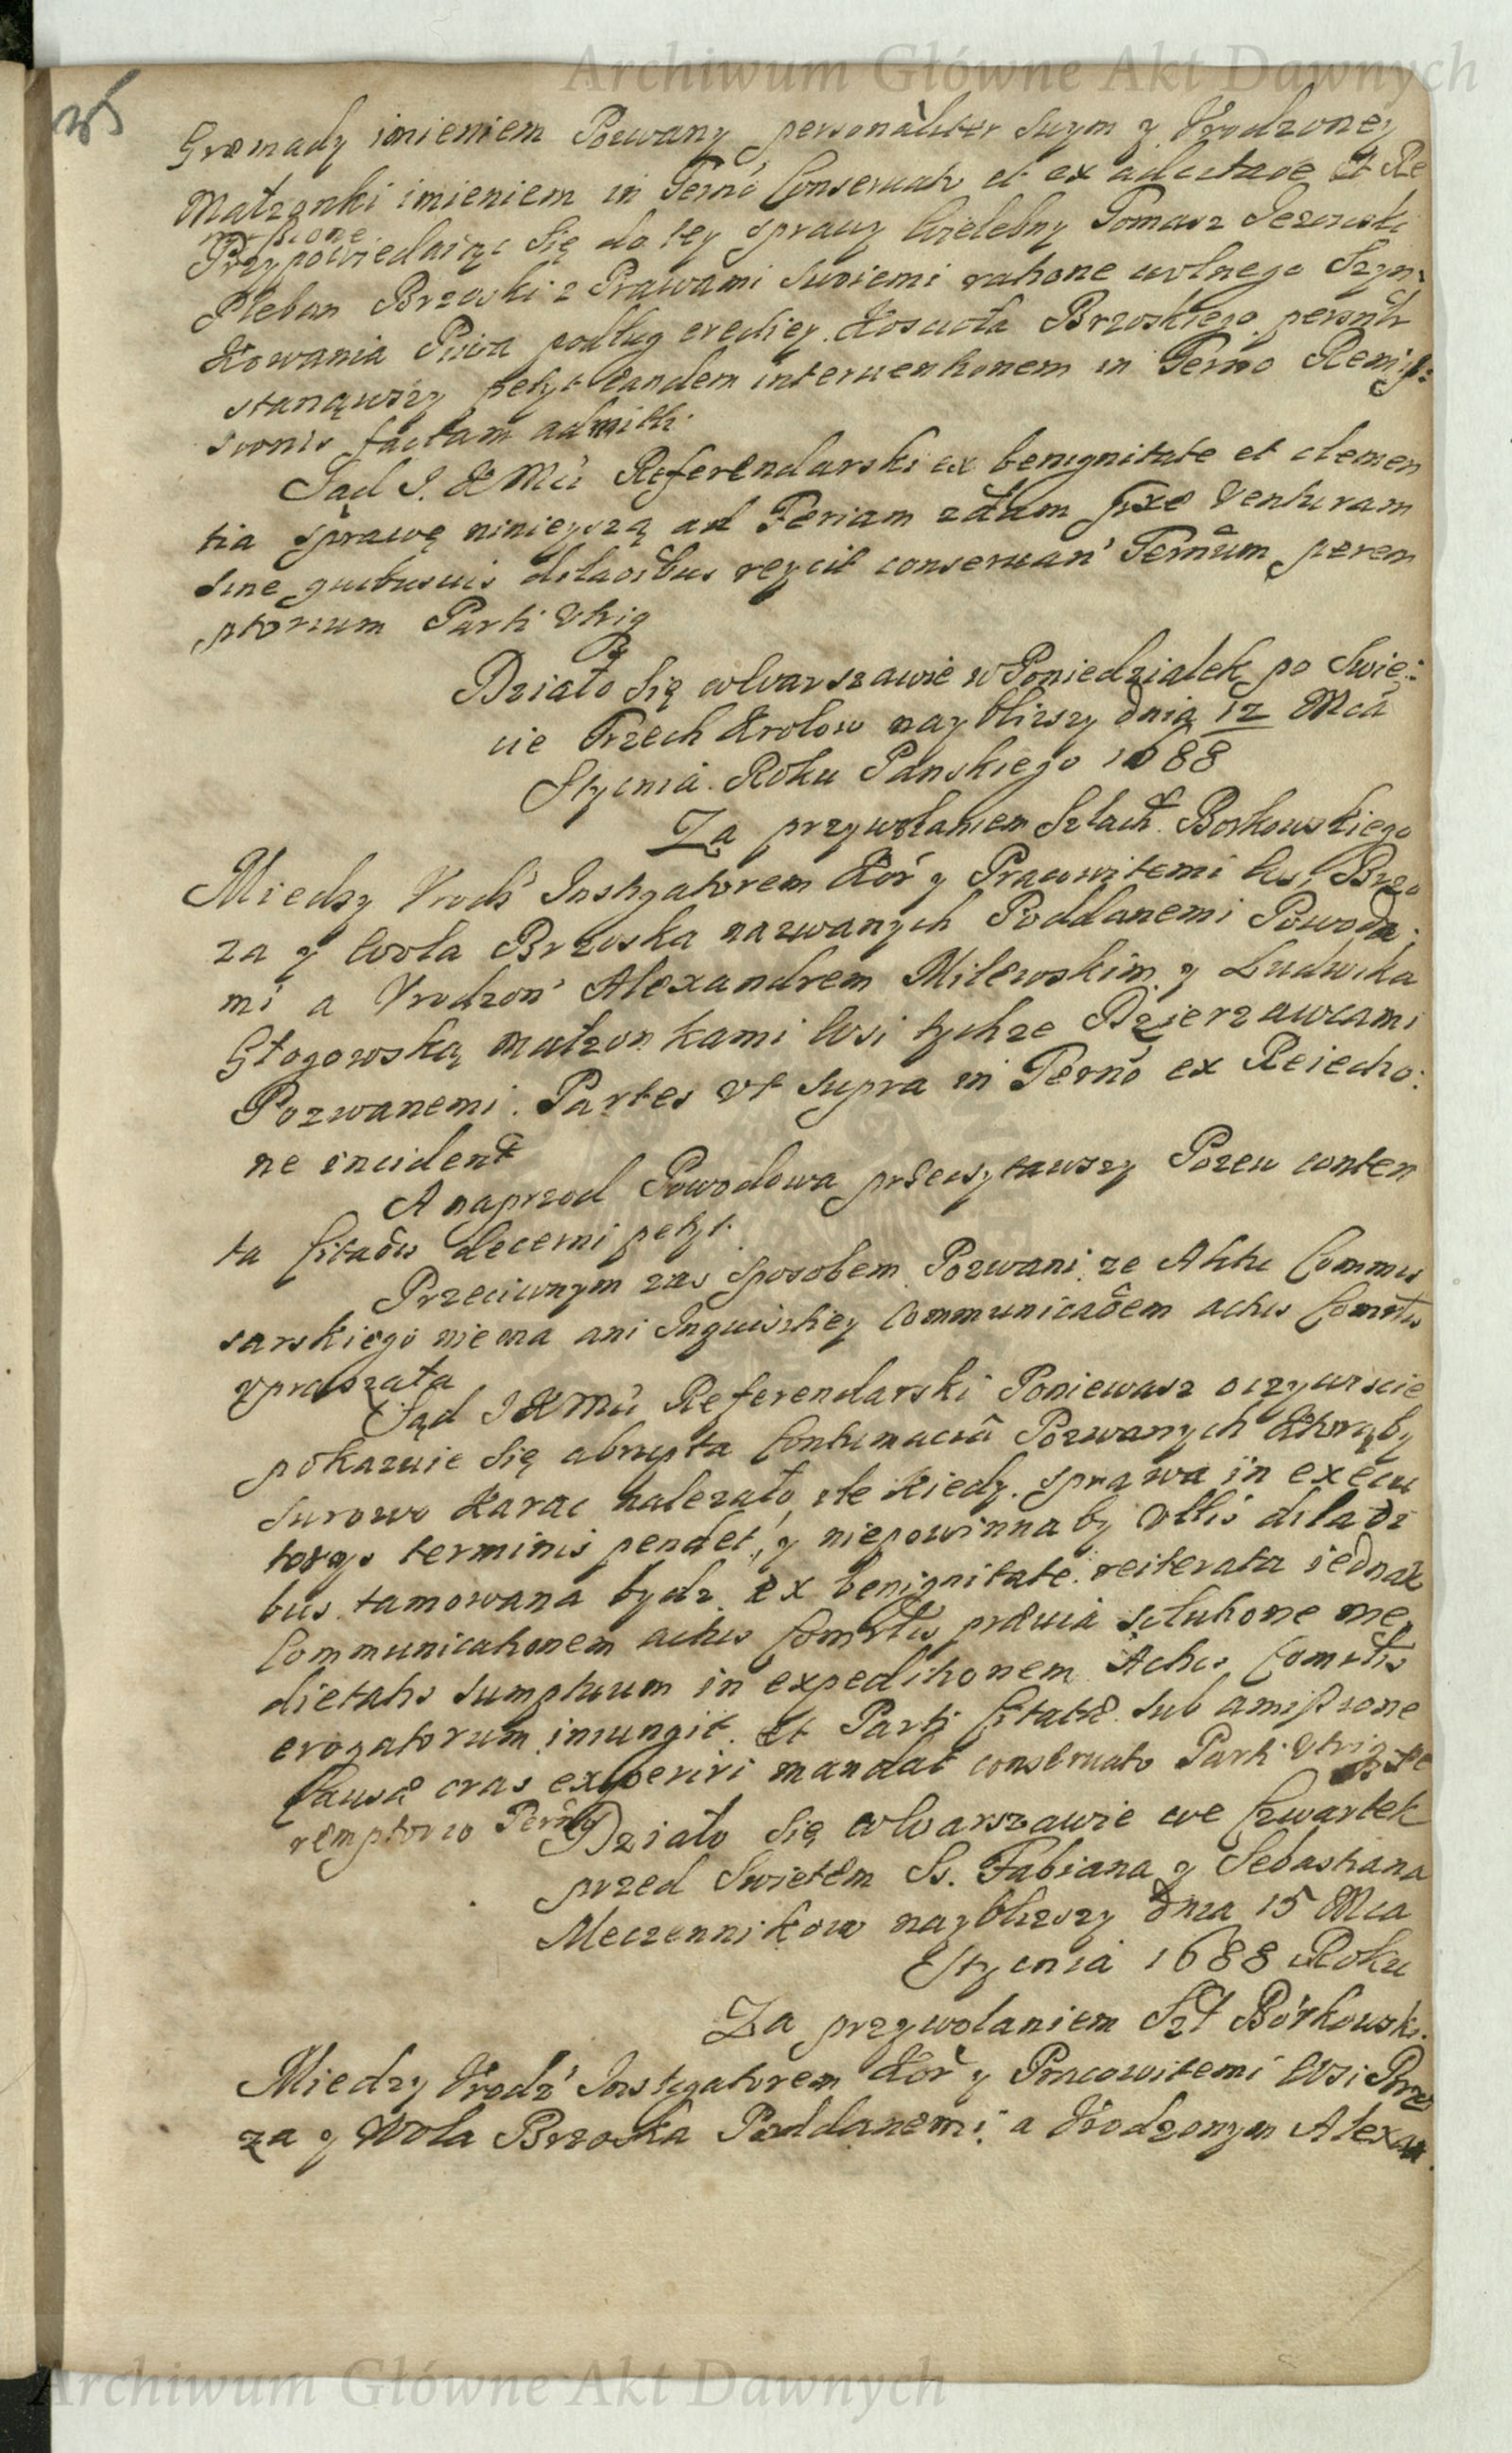 Archiwum Główne Akt Dawnych
Gromady imieniem Pozwany personaliter swym y Vrodzoney
Małzonki imieniem in Termo Conseruato et ex et Re
missione
Przypowiedaiąc Się do tey sprawy Wielebny Tomasz Jezowski
Pleban Brzoski z Prawami swoiemi rahone wolnego Szyn
kowania Piwa podług erectiey Koscioła Brzoskiego personlr
stanąwszy petyt eandem interuentionem in Termo Remis:
sionis factam admitti.
Sąd J. K Mci Referendarski ex benignitate et clemen
tia sprawę ninieyszą ad Feriam 2dam prox Venturam
sine quibusuis dilaoibus reycit conseruan' Termum perem
ptorium Parti Vtriq
Działo się w Warszawie w Poniedziałek po Swię:
cie Trzech Krolow nayblizszy dnia 12 Mca
Stycnia Roku Panskiego 1688
Za przywołaniem Szlach. Borkowskiego
Miedzy Vrodz' Instygatorem Kor' y Pracowitemi Wsi Brzo
za y Wola Brzoska nazwanych Poddanemi Powoda:
mi a Vrodzon' Alexandrem Milewskim y Ludwika
Głogowską małzonkami Wsi tychze Dzierzawcami
Pozwanemi. Partes vt supra in Termo ex Reiectio:
ne incident
A naprzod Powodowa przeczytawszy Pozew conten
ta Citaois decerni petyt.
Przeciwnym zas sposobem Pozwani ze Aktu Commis
sarskiego niema ani Inquisitiey Communicaoem actus Comrlis
vpraszała
Sąd J K Mci Referendarski Poniewasz oczywiscie
pokazuie się abrupta Contumacia Pozwanych Ktorąby
surowo karac nalezało, ile kiedy sprawa in execu
torys terminis pendet, y niepowinna by vllis dilaoi
bus tamowana bydz ex benignitate reiterata iednak
Communicationem actus Comrlis prævia solutione me
dietatis sumptuum in expeditionem Actus Comrlis
erogatorum iniungit et Parti Citatæ sub amissione
Causæ cras experiri mandat conseruato Parti Vtriq pe
remptorio Termo
Działo się w Warszawie we Czwartek
przed Swietem Ss. Fabiana y Sebastiana
Meczennikow nayblizszy dnia 15 Mca
Stycnia 1688 Roku
Za przywołaniem Szl Borkowski.
Miedzy Vrodz' Instygatorem Kor' y Pracowitemi Wsi Brzo
za y Wola Brzoska Poddanemi a Vrodzonym Alexan
Archiwum Główne Akt Dawnych